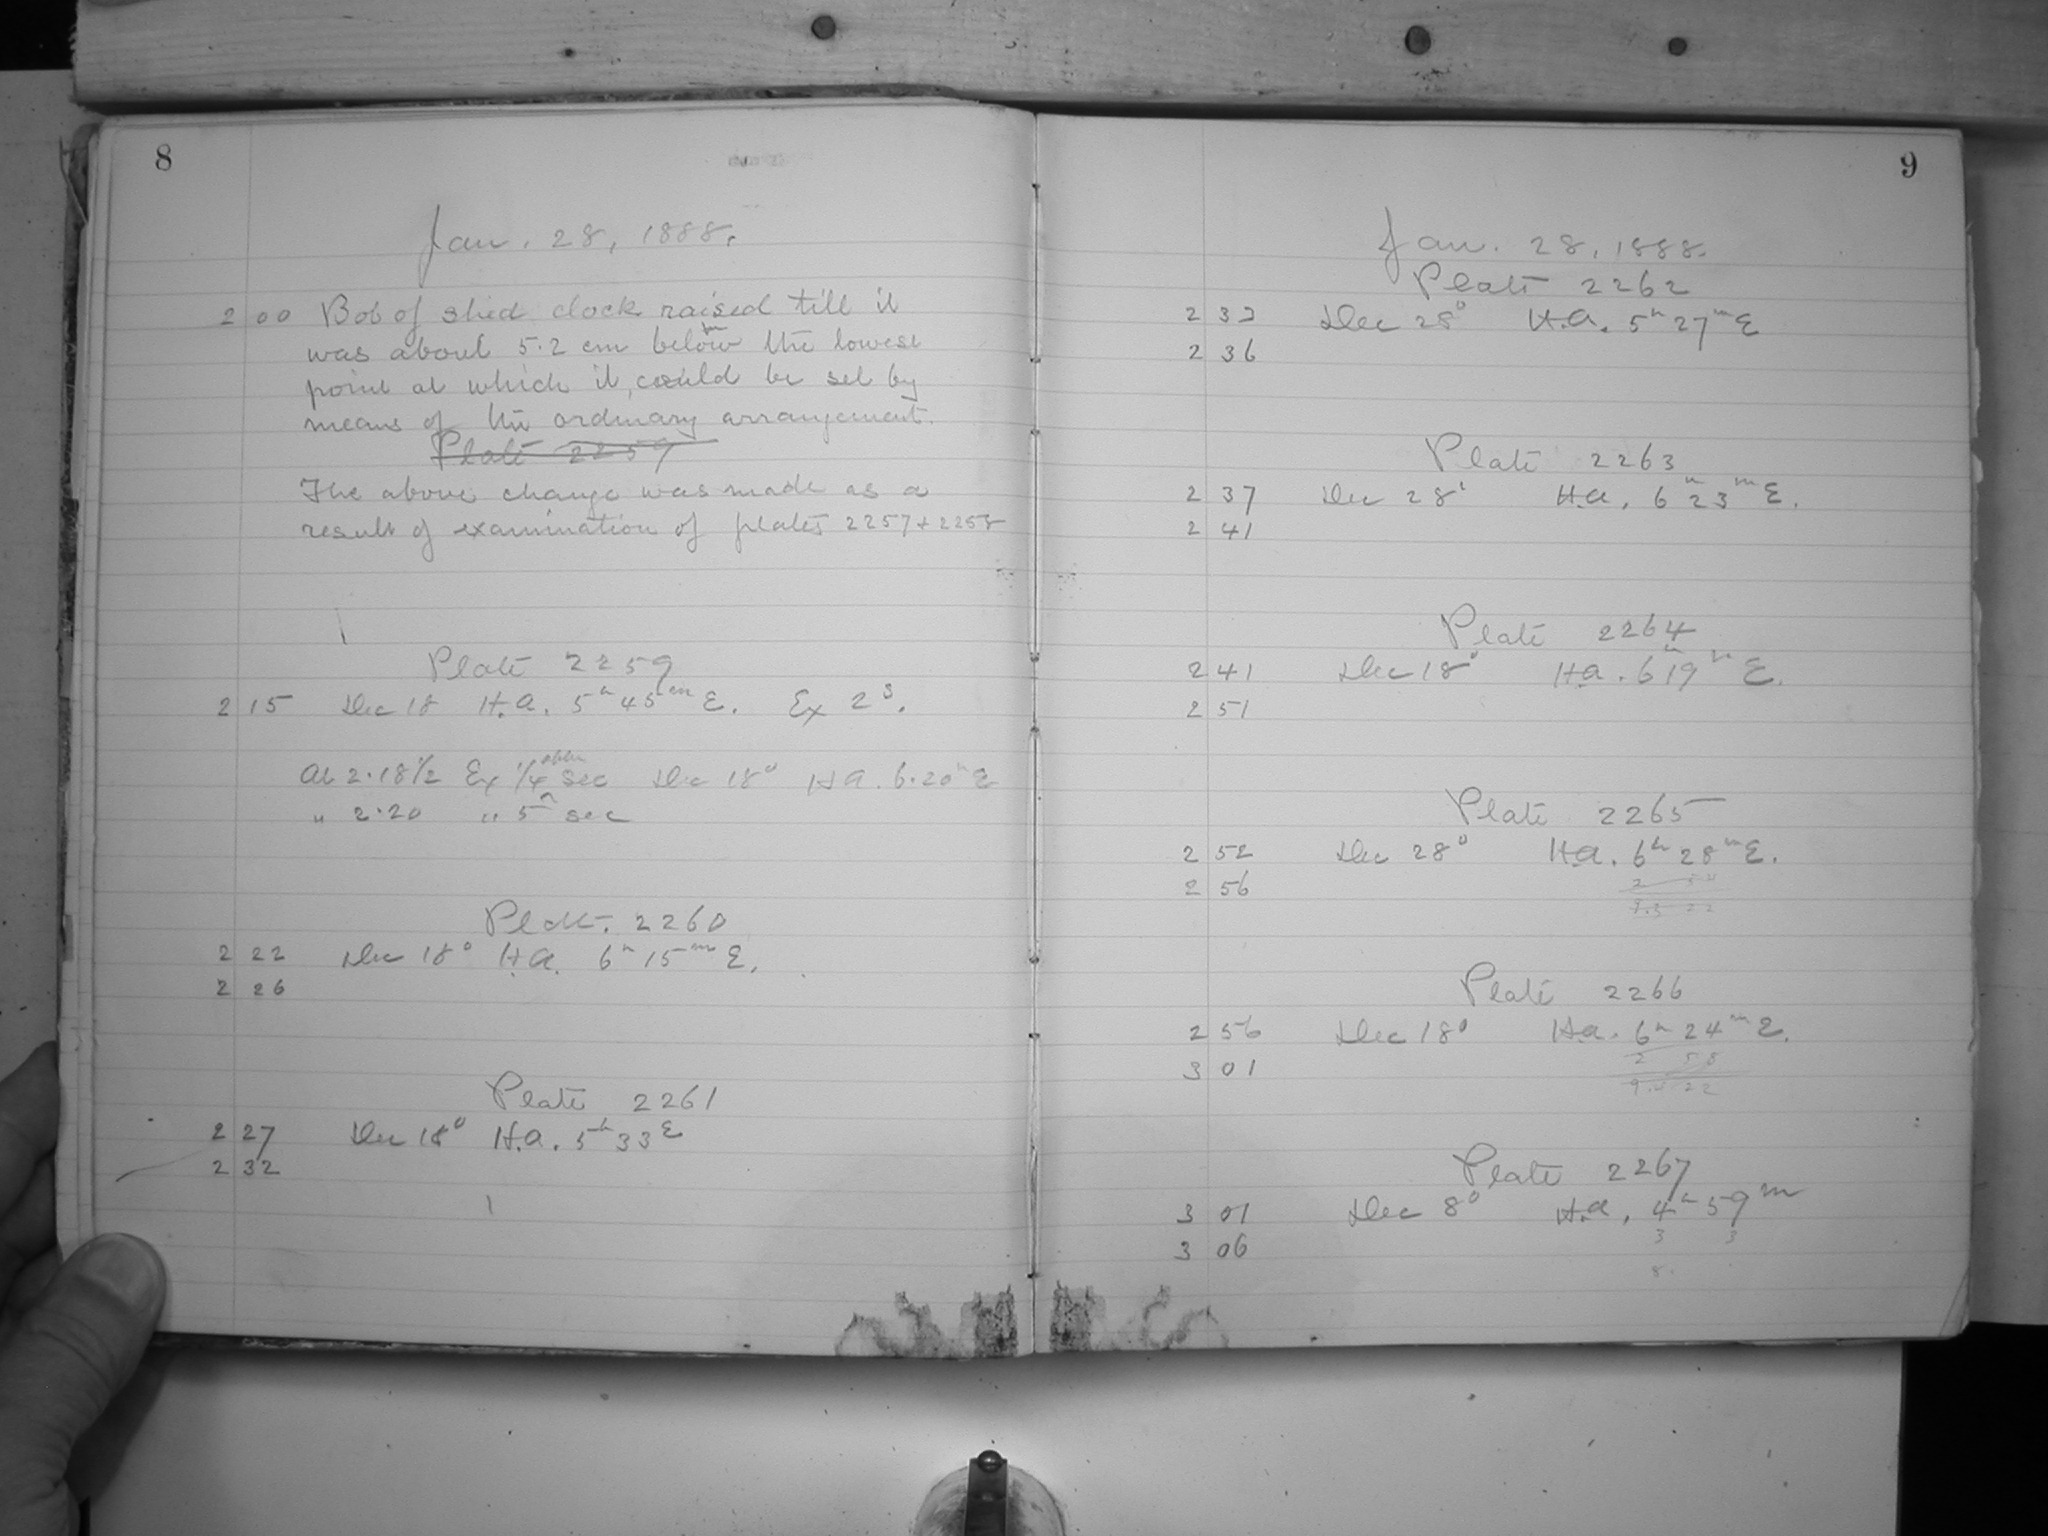 8
Jan. 28, 1888.
2 00 Bob of shed clock raised till it
was about 5.2 cm below the lowest
point at which it could be set by
means of the ordinary arrangement.
Plate 2259
The above change was made as a
result of examination of plates 2257 + 2258
Plate 2259
2 15 Dec 18 H.A. 5h 45m E. Ex 2s.
At 2.18 1/2 Ex 1/4 sec Dec 18° H A. 6.20 E
" 2.20 " 5 sec
Plate. 2260
2 22 Dec 18° H.A. 6h 15m E.
2 26
Plate 2261
2 27 Dec 18° H.A. 5h 33 E
2 32
9
Jan. 28, 1888.
Plate 2262
2 32 Dec 28° H.A. 5h 27m E
2 36
Plate 2263
2 37 Dec 28° H.A. 6h 23m E.
2 41
Plate 2264
2 41 Dec 18° H.A. 6h 19m E.
2 51
Plate 2265
2 52 Dec 28° H.A. 6h 28m E.
2 56
Plate 2266
2 56 Dec 18° H.A. 6h 24m E.
2 58
3 01
22
Plate 2267
3 01 Dec 8° H.A. 4h 59m
3 3
3 06
8.